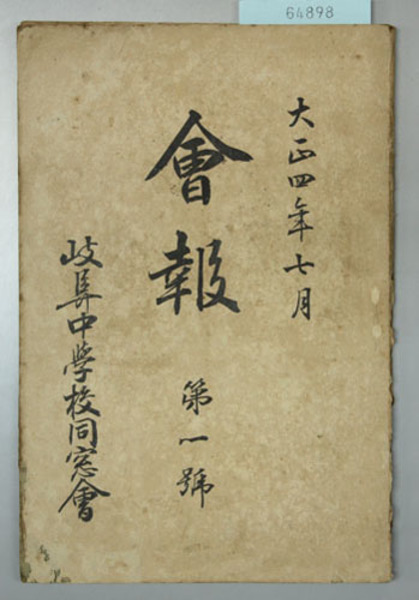 64898
大正四年七月
會報
第一號
岐阜中學校同窓會